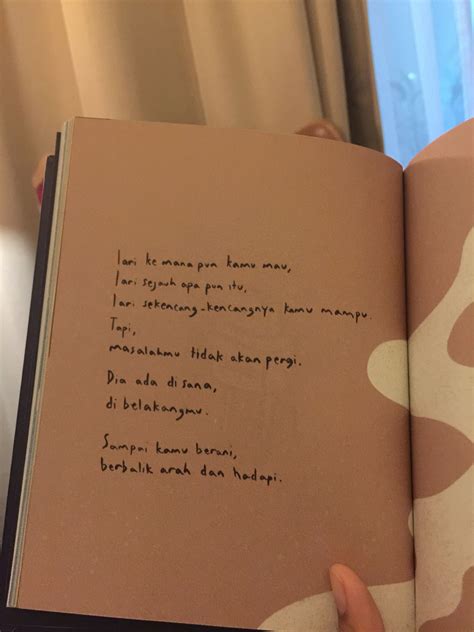 lari ke mana pun kamu mau,
lari sejauh apa pun itu,
lari sekencang-kencangnya kamu mampu.
Tapi,
masalahmu tidak akan pergi.
Dia ada di sana,
di belakangmu.
Sampai kamu berani,
berbalik arah dan hadapi.